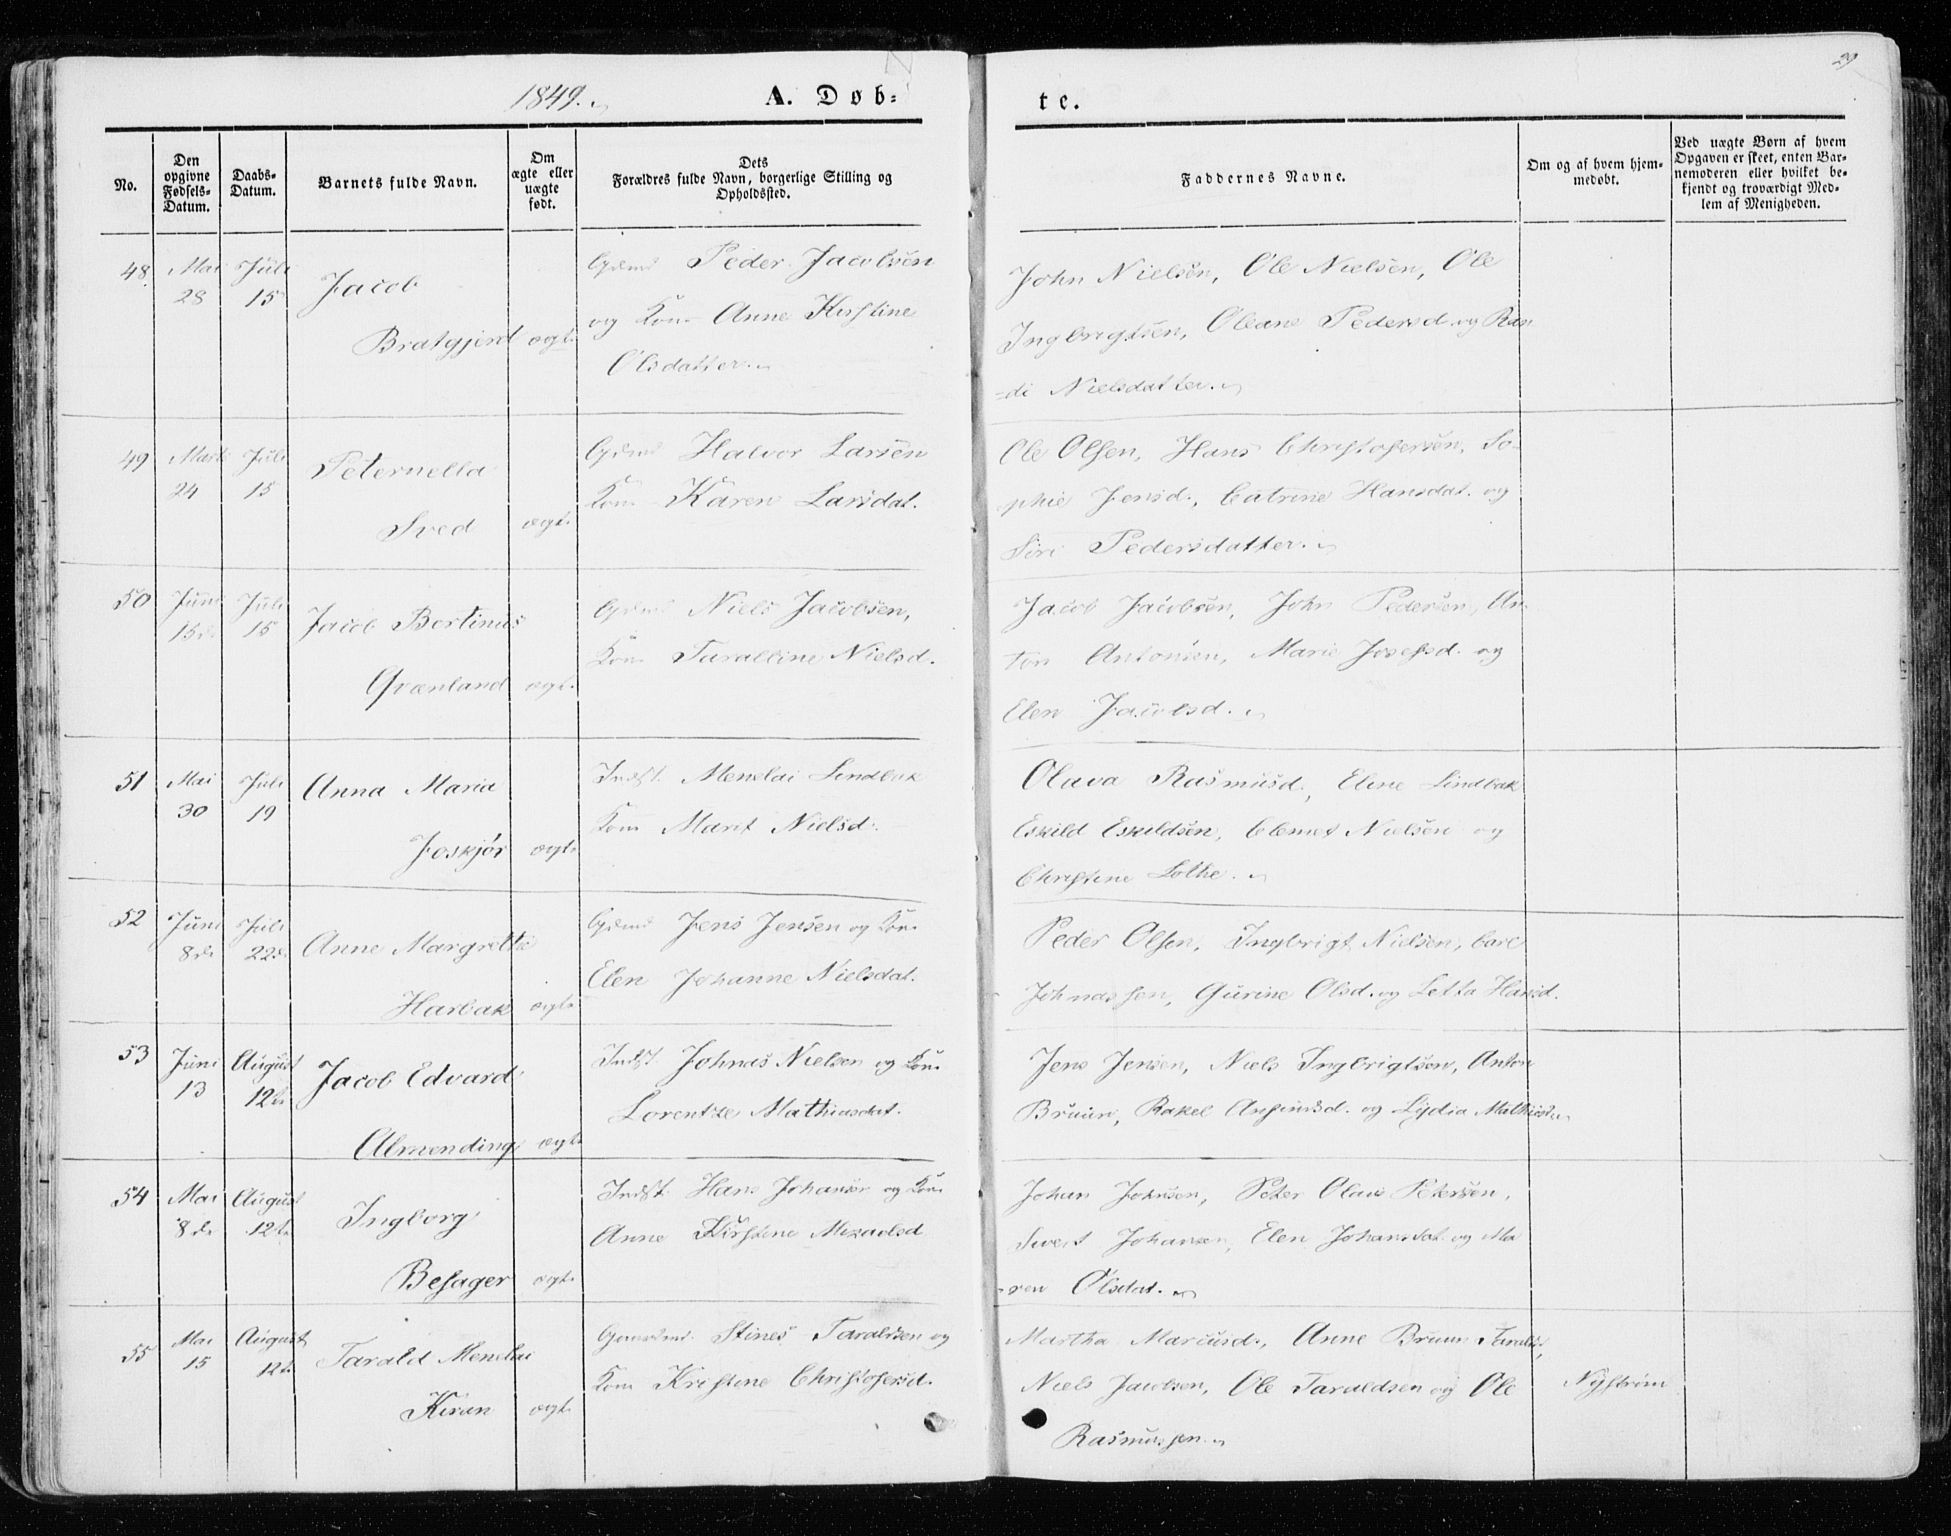 1849.
A. Døb-
te.
29
No.
Den opgivne Fødsels-Datum.
Daabs-Datum.
Barnets fulde Navn.
Om ægte eller uægte født.
Dets Forældres fulde Navn, borgerlige Stilling og Opholdssted.
Faddernes Navne.
Om og af hvem hjemmedøbt.
Ved uægte Børn af hvem Opgaven er skeet, enten Barnemoderen eller hvilket bekjendt og troværdigt Medlem af Menigheden.
48. Mai 28 Juli 15 Jacob
Bratgjerd ægt.
Gdmd Peder Jacobsen
og Kone Anne Kirstine
Olsdatter.
John Nielsen, Ole Nielsen, Ole
Ingbrigtsen, Oleane Pedersd. og Ran
-di Nielsdatter.
49 Marts 24 Juli 15 Peternella
Sved ægt.
Gdmd Halvor Larsen
Kone Karen Larsdat.
Ole Olsen, Hans Christofersen, So-
phie Jensd., Catrine Hansdat. og
Siri Pedersdatter.
50 Juni 15de Juli 15 Jacob Bertinus
Grænland ægt.
Gdmd Niels Jacobsen,
Kone Taralline Nielsd.
Jacob Jacobsen, John Pedersen, An-
ton Antonsen, Marie Josefsd. og
Elen Jacobsd.
51 Mai 30 Juli 19 Anna Maria
Joskjør ægt.
Indst. Menelai Lindbak
Kone Marit Nielsd.
Olava Rasmusd., Elene Lindbak
Eskild Eskildsen, Clemet Nielsen og
Christine Lothe.
52 Juni 8de Juli 22de Anne Margrethe
Harbak ægt.
Gdmd Jens Jensen og Kone
Elen Johanne Nielsdat.
Peder Olsen, Ingbrigt Nielsen, Carl
Johnassen, Gurine Olsd. og Letta Hansd.
53 Juni 13 August 12te Jacob Edvard
Almending ægt.
Indst. Johnas Nielsen og Kone
Lorentze Mathiasdat.
Jens Jensen, Niels Ingbrigtsen, Anton
Bruun, Rakel Ansindsd. og Lydia Mathiasd.
54 Mai 8de August 12te Ingborg
Besager ægt.
Indst. Hans Johansen og Kone
Anne Kirstine Mikaelsd
Johan Johnsen, Peter Olaus Petersen,
Sivert Johansen, Elen Johansdat. og Ma
-ren Olsdat.
55 Mai 15 August 12te Tarald Menelai
Kiran ægt.
Gaardmd. Stines Taraldsen og
Kone Kristine Christofersd.
Martha Marcusd., Anne Bruun Taralds.,
Niels Jacobsen, Ole Taraldsen og Ole
Rasmussen.
Nystrøm